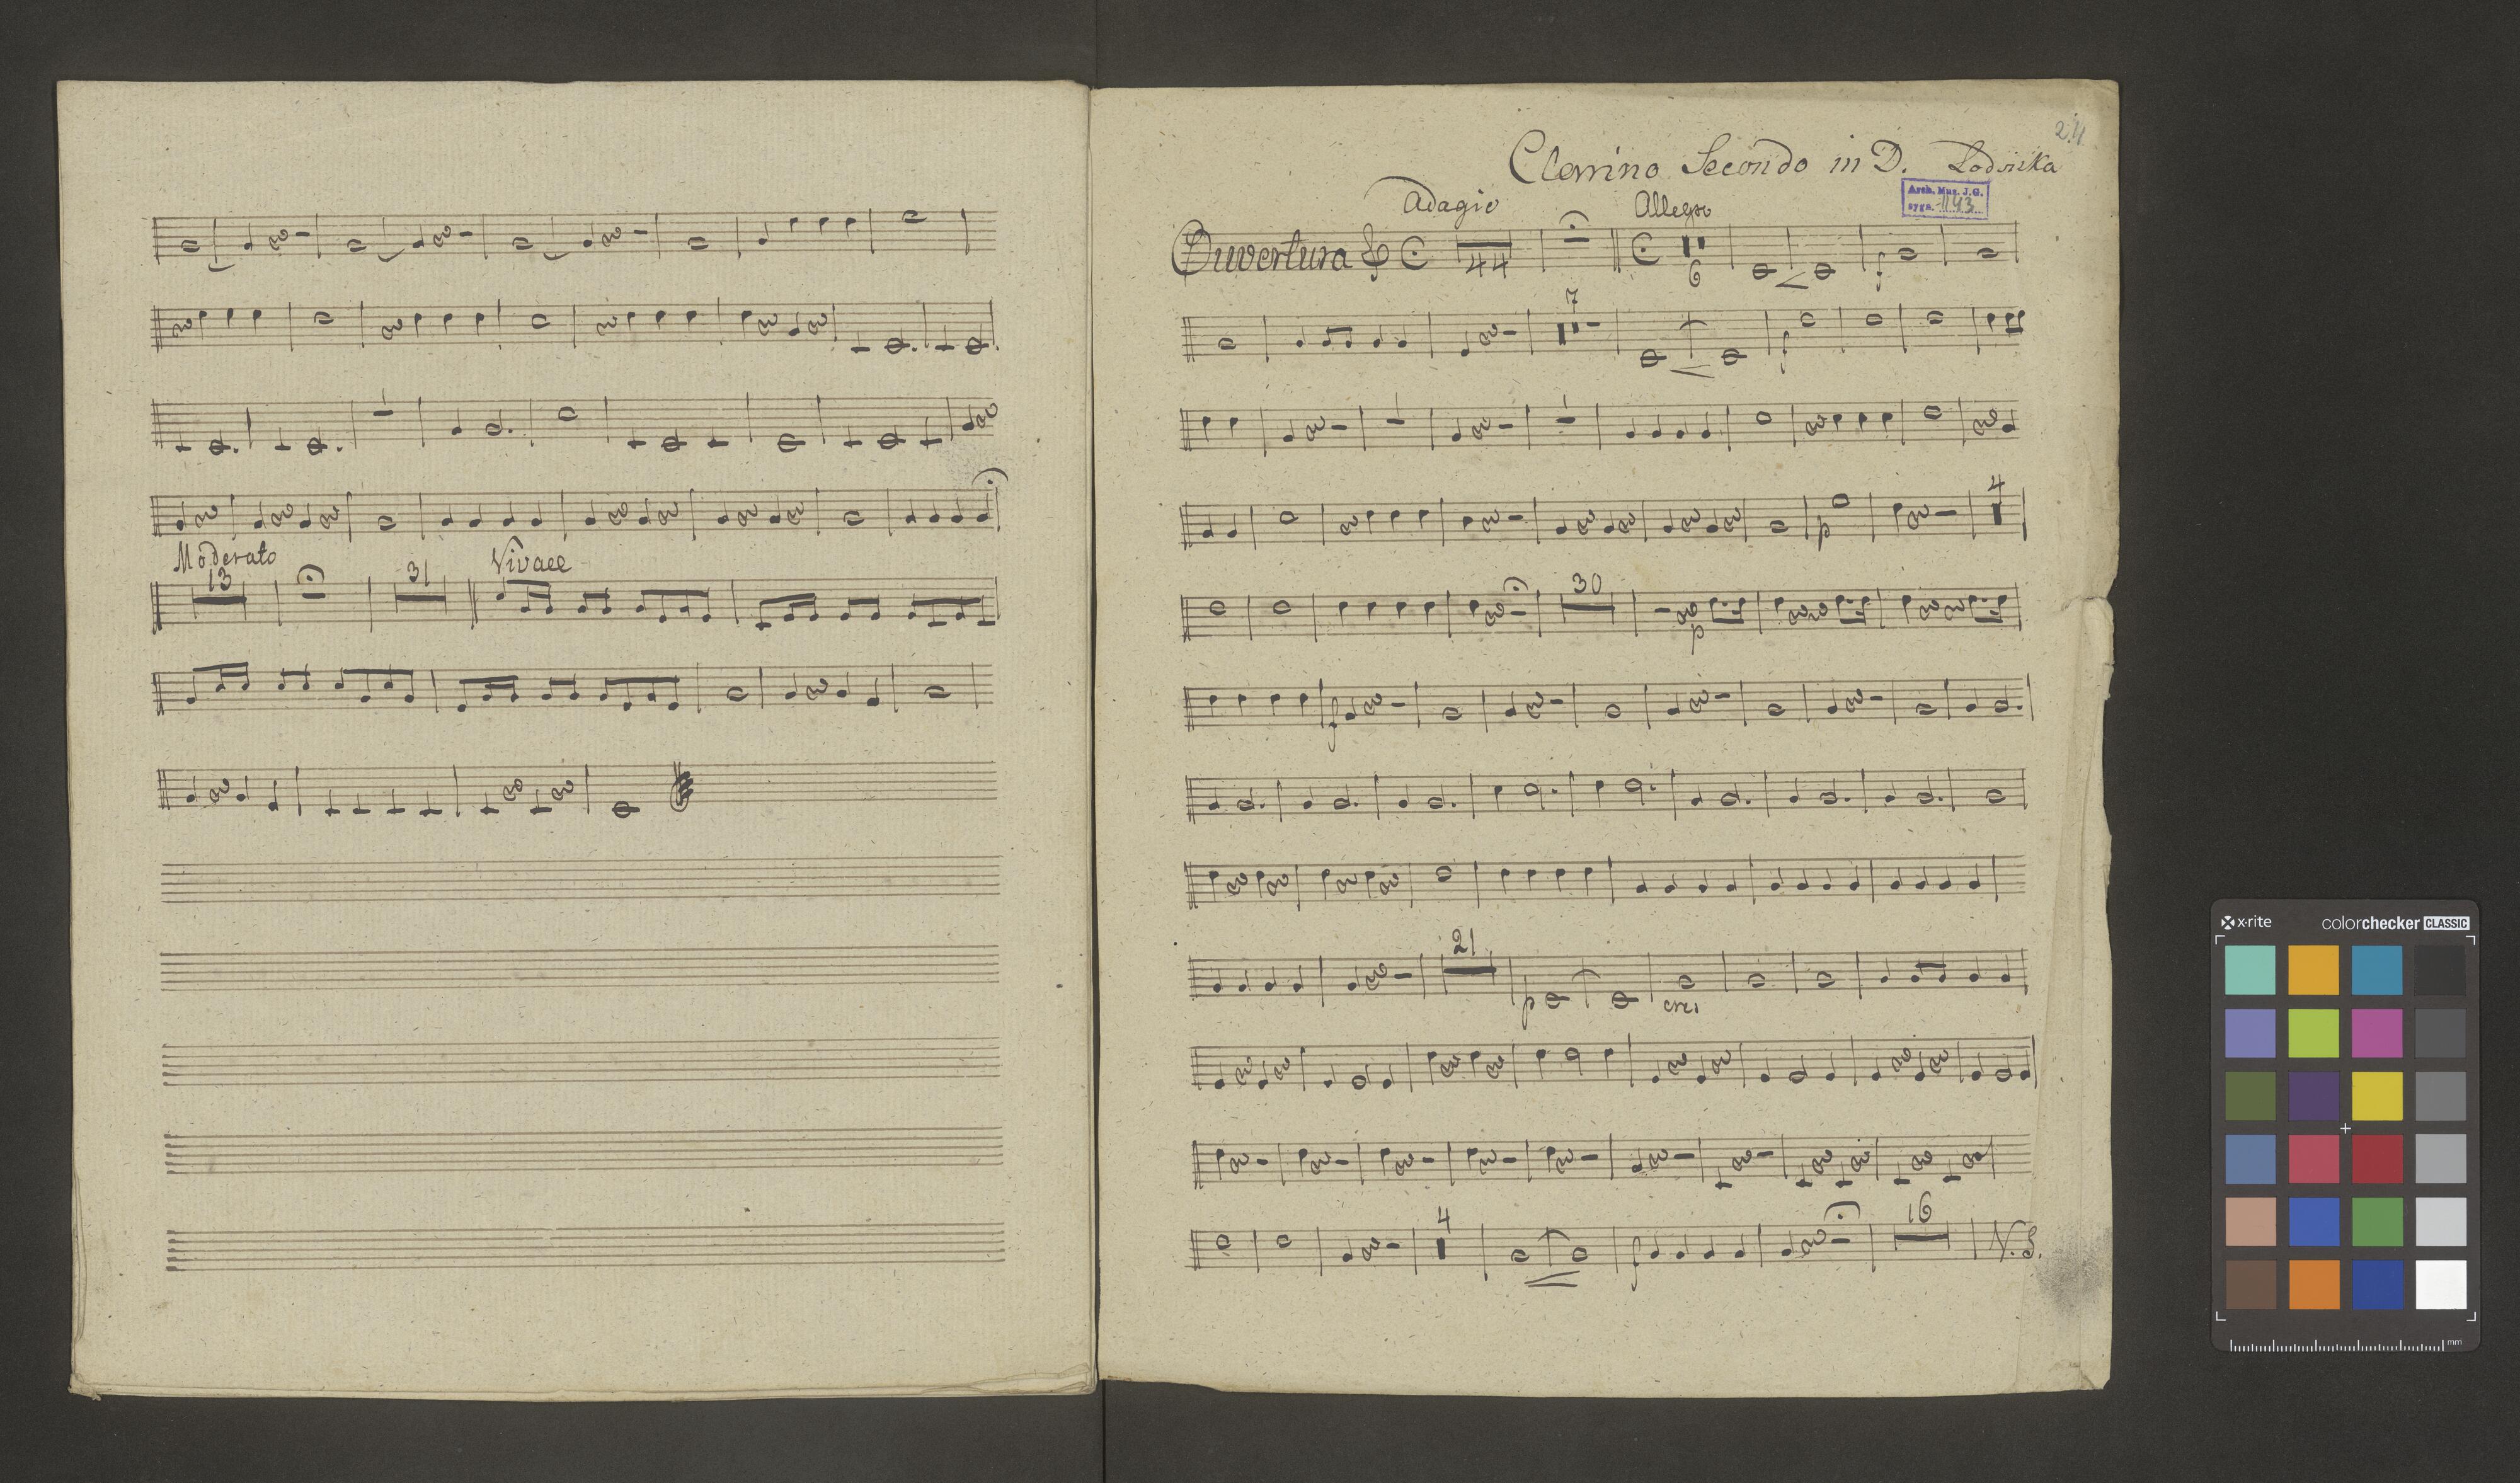 Moderato
13
31
Vivace
24
Clarino Secondo in D. Lodoiska
Arch. Muz. J.G.
sygn. 1143
Adagio
Allegro
Ouvertura
44
6
f
7
f
p
4
30
p
f
21
p
cres
4
f
16
V. S.
x·rite
colorchecker CLASSIC
mm